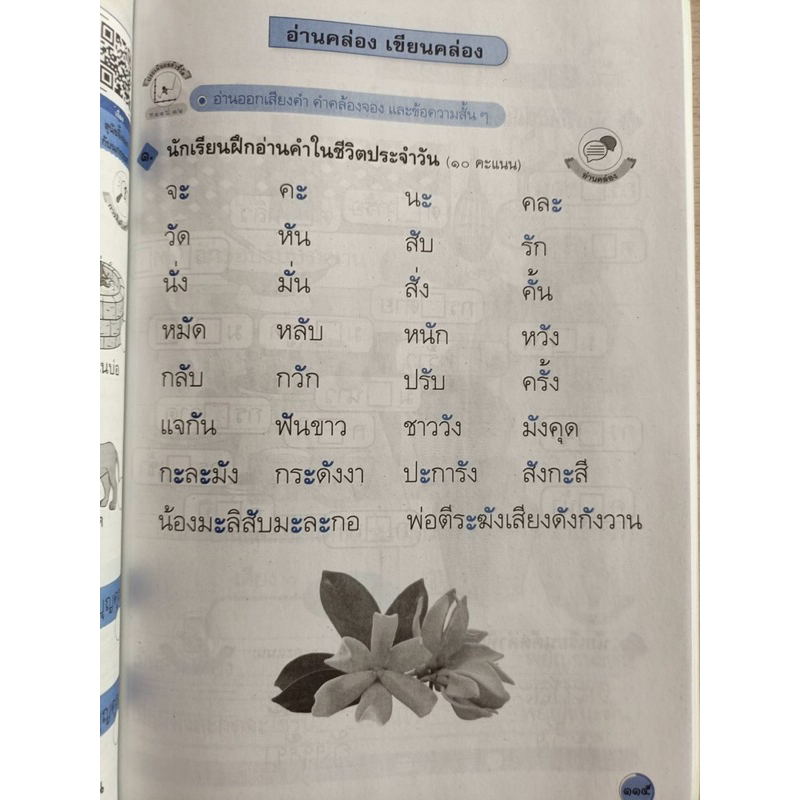 อ่านคล่อง เขียนคล่อง
• อ่านออกเสียงคำ คำคล้องจอง และข้อความสั้น ๆ
๑. นักเรียนฝึกอ่านคำในชีวิตประจำวัน (๑๐ คะแนน)
อ่านคล่อง
จะ คะ นะ คละ
วัด หัน สับ รัก
นั่ง มั่น สั่ง คั้น
หมัด หลับ หนัก หวัง
กลับ กวัก ปรับ ครั้ง
แจกัน ฟันขาว ชาววัง มังคุด
กะละมัง กระดังงา ปะการัง สังกะสี
น้องมะลิสับมะละกอ พ่อตีระฆังเสียงดังกังวาน
๑๑๕